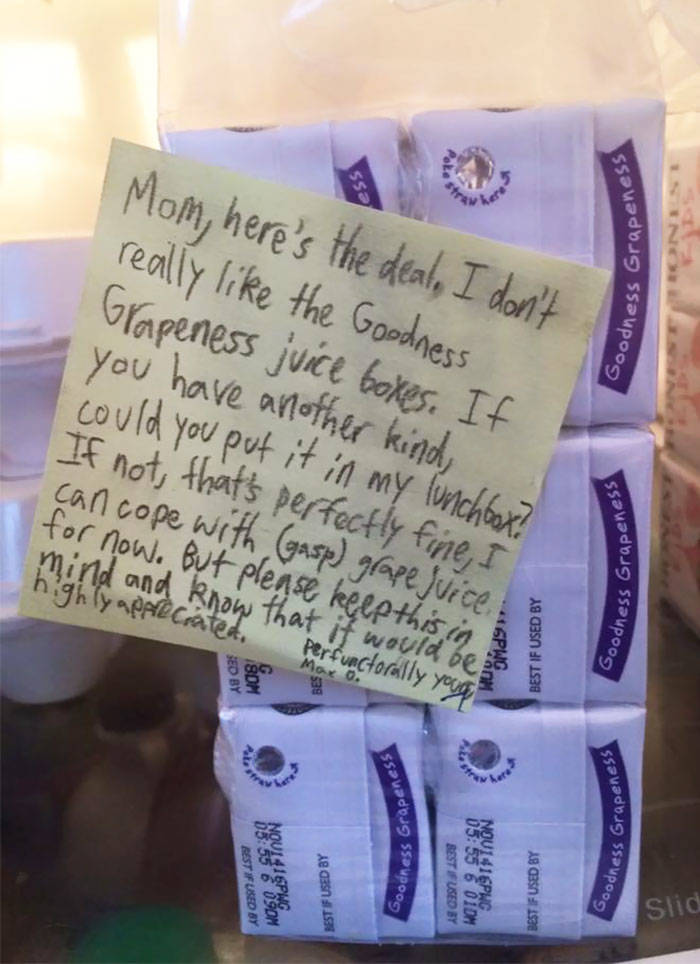 Mom, here's the deal. I don't
really like the Goodness
Grapeness juice boxes. If
you have another kind,
could you put it in my lunchbox?
If not, that's perfectly fine, I
can cope with (gasp) grape juice.
for now. But please keep this in
mind and know that it would be
highly appreciated.
perfunctorally yours
Max O.
ess
Poke straw here
Goodness Grapeness
HONEST
BEST IF USED BY
Goodness Grapeness
8DM
SED BY
BES
Poke straw here
NOV1416PWG
05:55 6 09DM
BEST IF USED BY
BEST IF USED BY
Goodness Grapeness
Poke straw here
NOV1416PWG
05:55 6 01DM
BEST IF USED BY
BEST IF USED BY
Goodness Grapeness
Slid